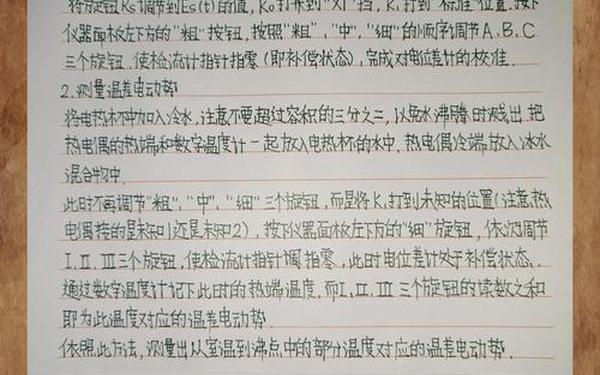 将旋钮Ks调节到Es(t)的值,K₀打开到"X1"挡,K,打到"标准"位置.按下
仪器面板左下方的"粗"按钮,按照"粗","中","细"的顺序调节A、B、C
三个旋钮.使检流计指针指零(即补偿状态),完成对电位差计的校准.
2.测量温差电动势
将电热杯中加入冷水,注意不要超过容积的三分之三,以免水沸腾时溅出.把
热电偶的热端和数字温度计一起放入电热杯的水中,热电偶冷端放入冰水
混合物中.
此时不再调节"粗"、"中"、"细"三个旋钮,而是将K,打到未知的位置(注意热
电偶接的是未知1还是未知2),按下仪器面板左下方的"细"旋钮,依次调节
I、II、III三个旋钮,使检流计指针调指零,此时电位差计处于补偿状态.
通过数字温度计记下此时的热端温度.而I、II、III三个旋钮的读数之和
即为此温度对应的温差电动势.
依照此方法,测量出从室温到沸点中的部分温度对应的温差电动势.